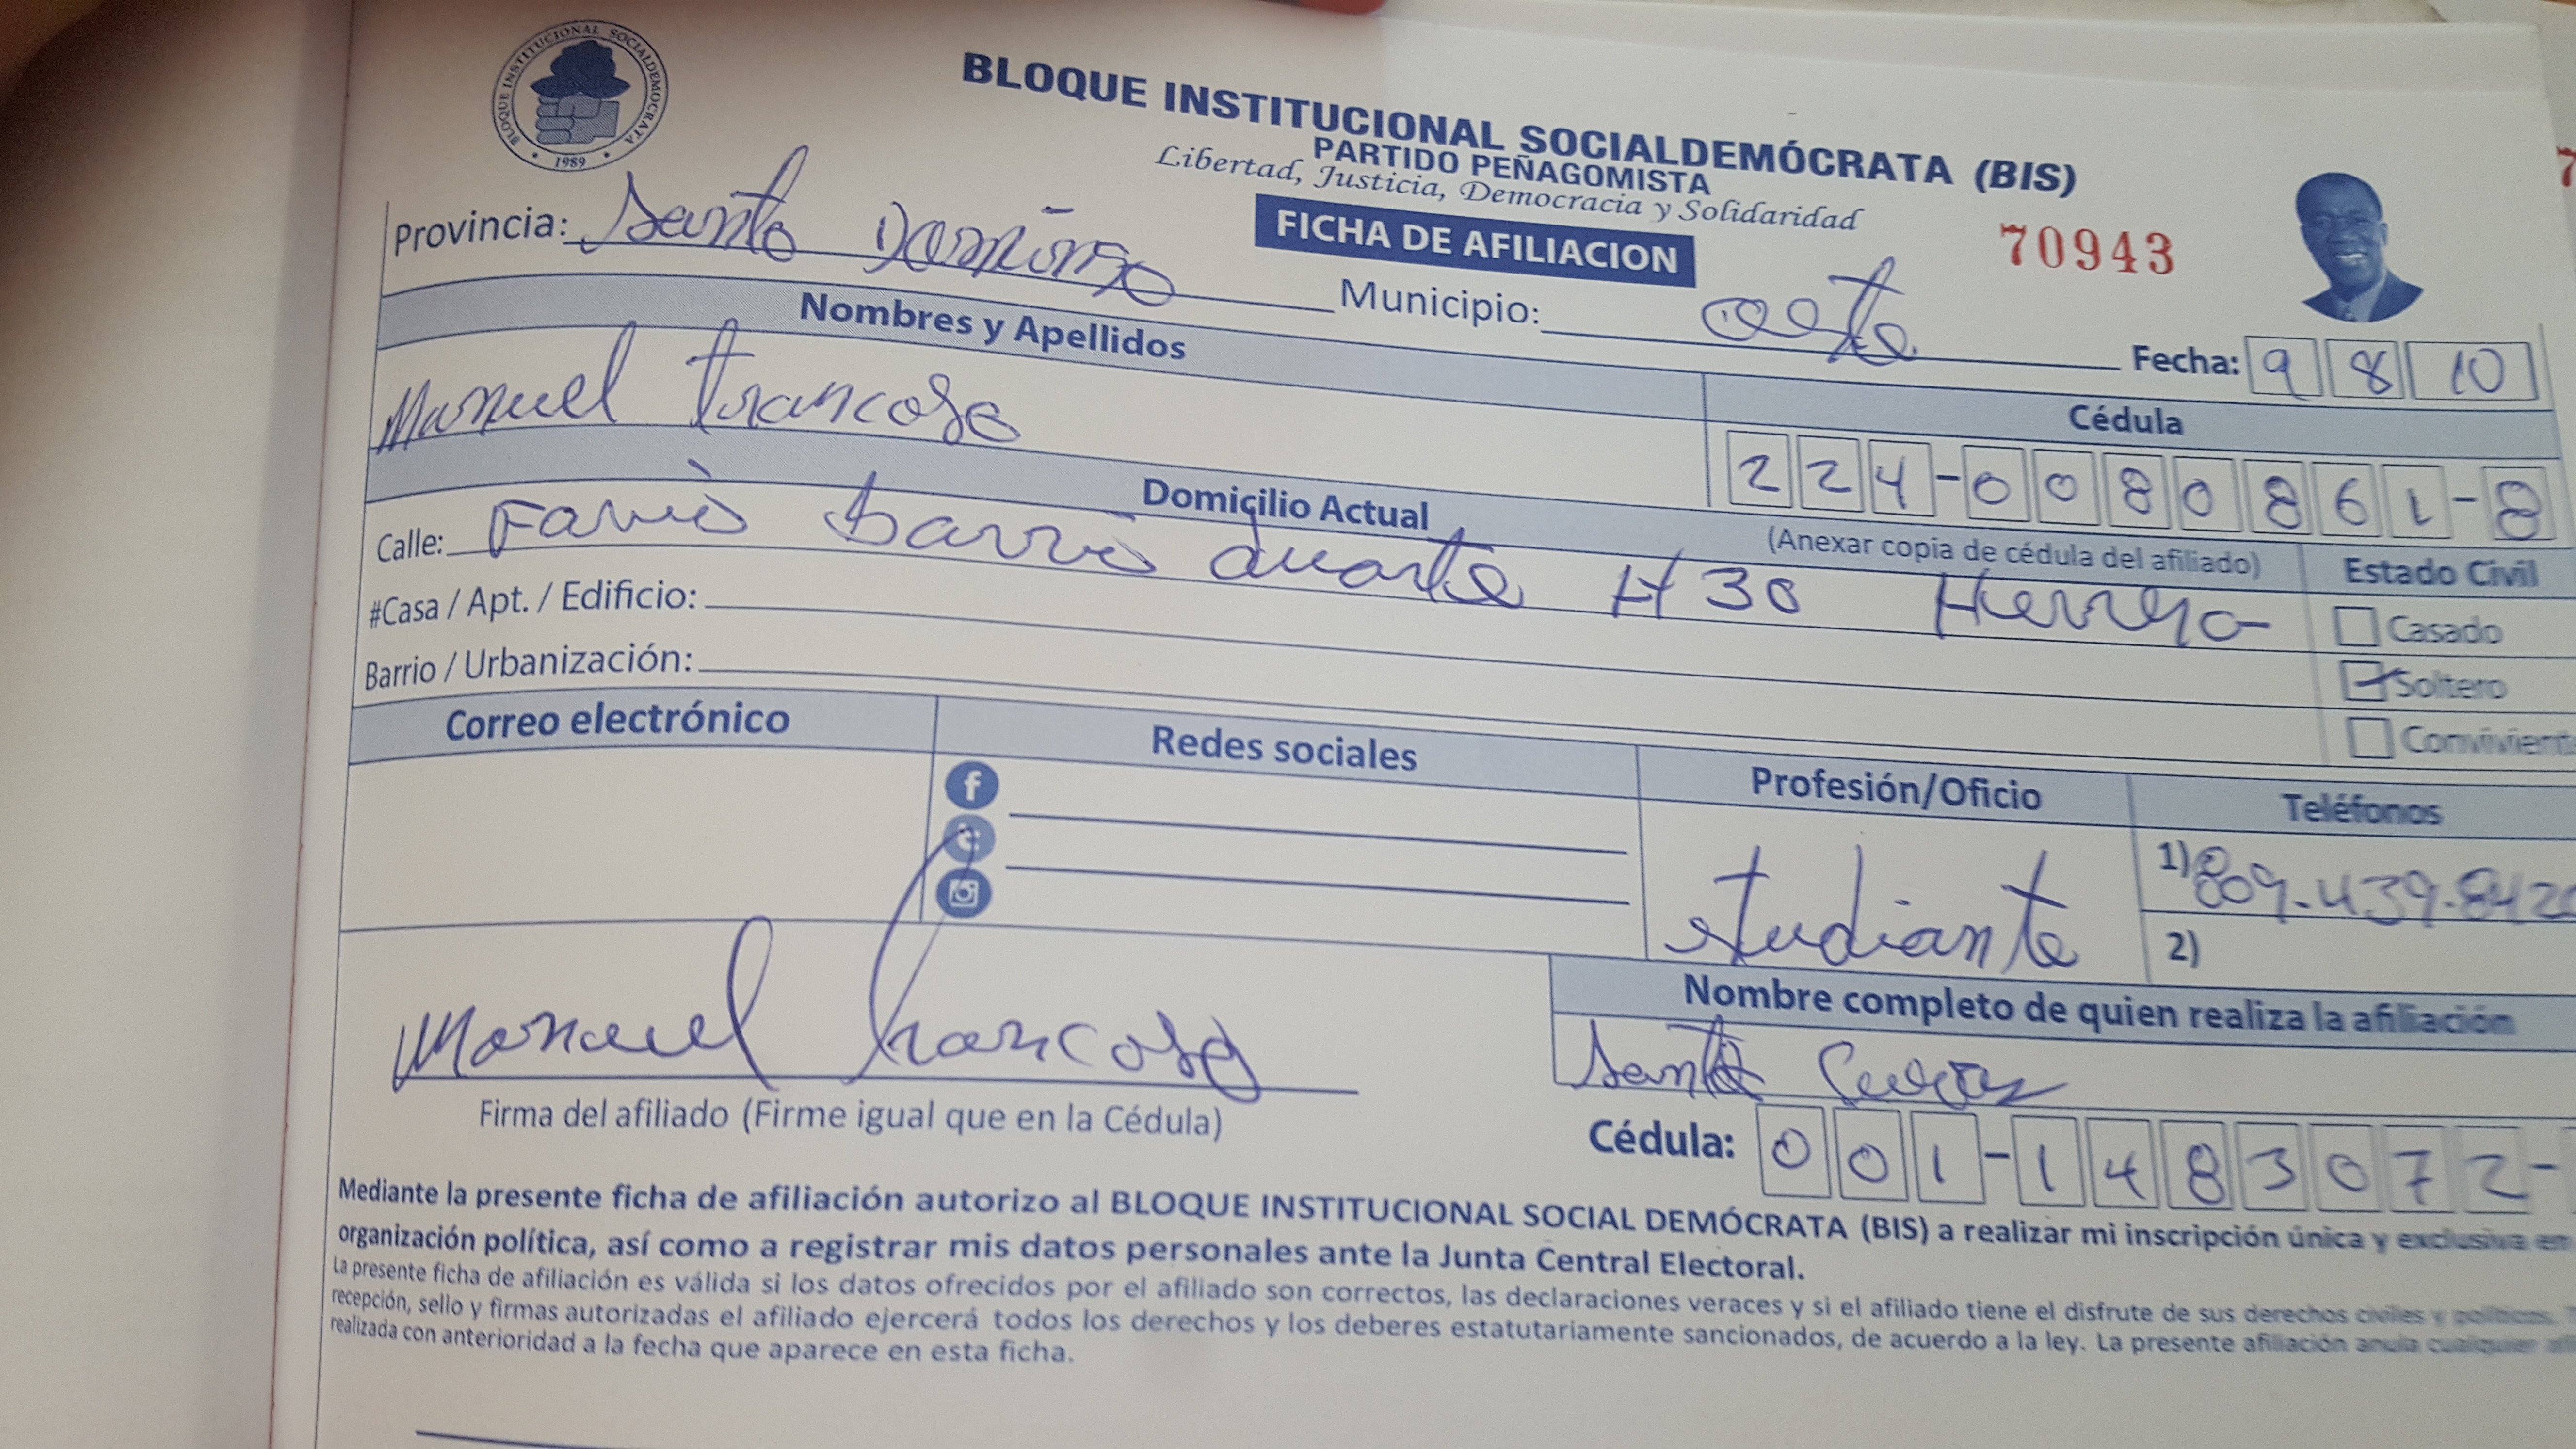 BLOQUE INSTITUCIONAL SOCIALDEMOCRATA
1989
BLOQUE INSTITUCIONAL SOCIALDEMÓCRATA (BIS)
PARTIDO PEÑAGOMISTA
Libertad, Justicia, Democracia y Solidaridad
FICHA DE AFILIACION
70943
Provincia: Santo Domingo
Municipio: oeste
Fecha: 9 8 10
Nombres y Apellidos
Manuel Francoso
Cédula
224-0080861-8
(Anexar copia de cédula del afiliado)
Domicilio Actual
Calle: Barrio duarte # 30 Herrera
#Casa / Apt. / Edificio:
Barrio / Urbanización:
Estado Civil
Casado
Soltero
Conviviente
Correo electrónico
Redes sociales
Profesión/Oficio
Teléfonos
studiante
1) 809-439-842
2)
Manuel Francoso
Firma del afiliado (Firme igual que en la Cédula)
Nombre completo de quien realiza la afiliación
Santa Cuevas
Cédula: 001-1483072-
Mediante la presente ficha de afiliación autorizo al BLOQUE INSTITUCIONAL SOCIAL DEMÓCRATA (BIS) a realizar mi inscripción única y exclusiva en
organización política, así como a registrar mis datos personales ante la Junta Central Electoral.
La presente ficha de afiliación es válida si los datos ofrecidos por el afiliado son correctos, las declaraciones veraces y si el afiliado tiene el disfrute de sus derechos civiles y políticos.
recepción, sello y firmas autorizadas el afiliado ejercerá todos los derechos y los deberes estatutariamente sancionados, de acuerdo a la ley. La presente afiliación anula cualquier
realizada con anterioridad a la fecha que aparece en esta ficha.